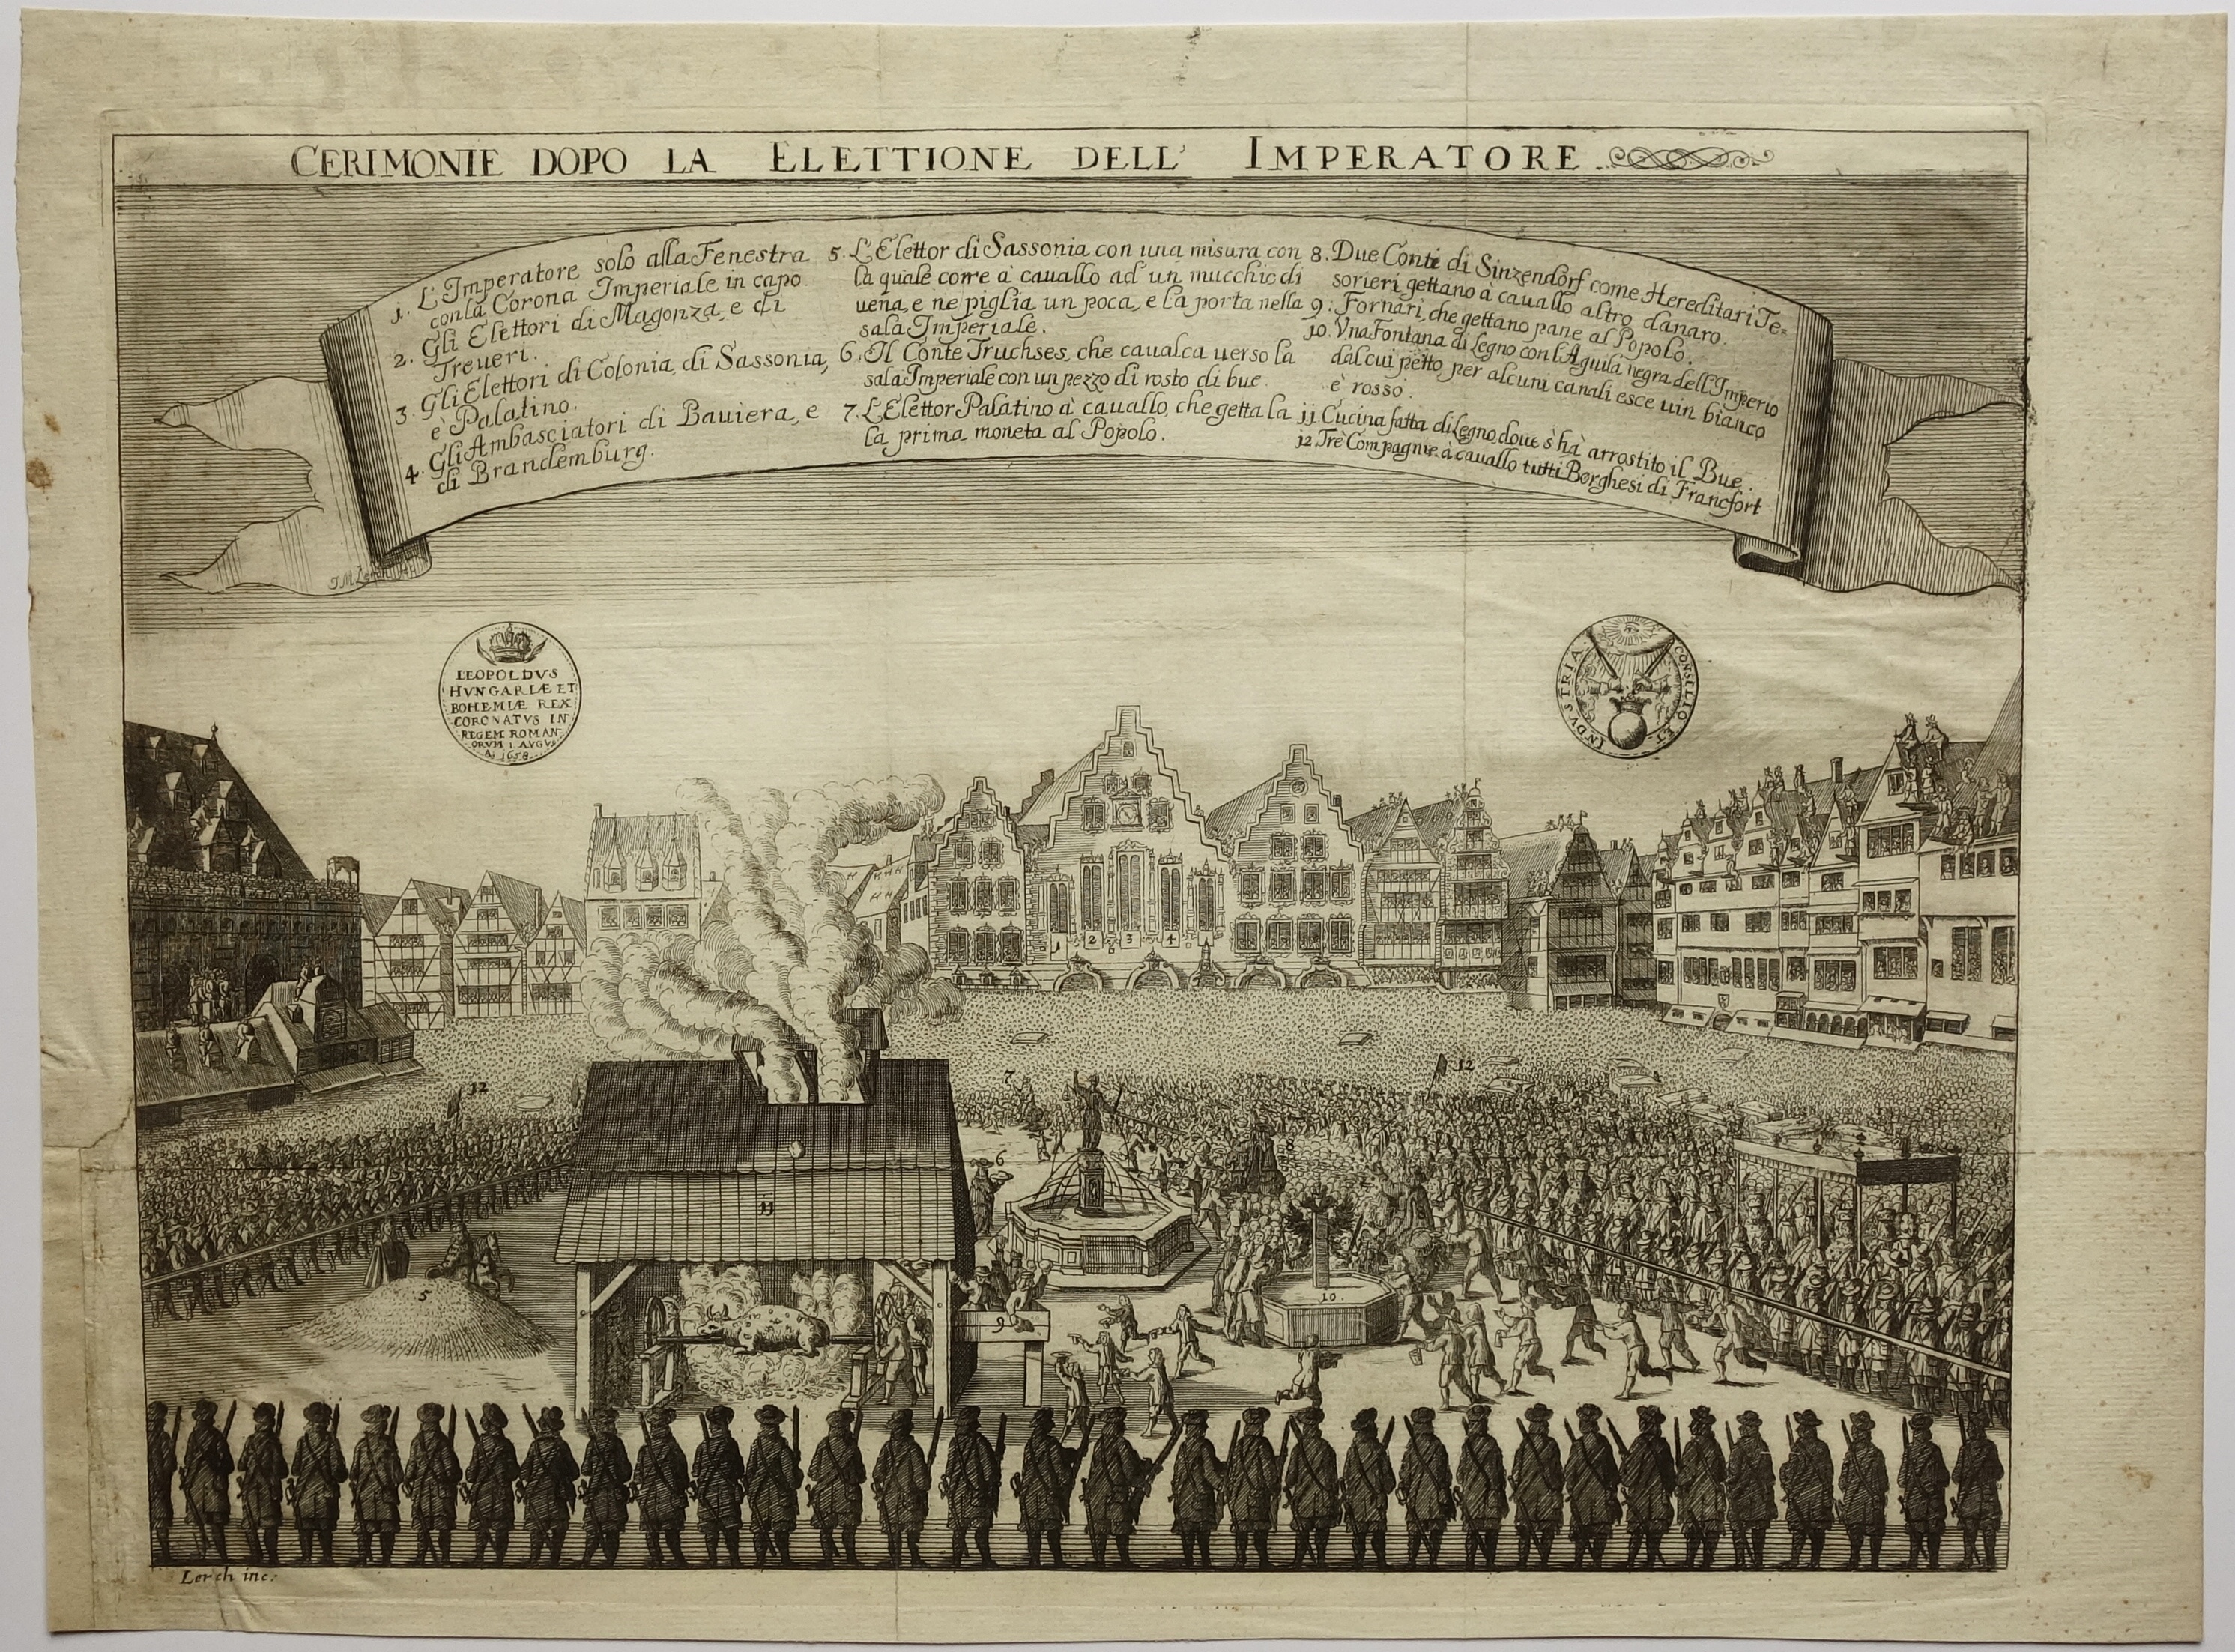 CERIMONIE DOPO LA ELETTIONE DELL' IMPERATORE
1. L'Imperatore solo alla Fenestra
con la Corona Imperiale in capo
2. Gli Elettori di Magonza, e di
Treueri.
3 Gli Elettori di Colonia, di Sassonia,
è Palatino.
4. Gli Ambasciatori di Bauiera, e
di Brandemburg.
5. L'Elettor di Sassonia con una misura con
la quale corre à cauallo ad un mucchio di
uena, e ne piglia un poca, e la porta nella
sala Imperiale.
6. Il Conte Truchses, che caualca uerso la
sala Imperiale con un pezzo di rosto di bue.
7. L'Elettor Palatino à cauallo, che getta la
la prima moneta al Popolo.
8. Due Conti di Sinzendorf come Hereditari Te-
sorieri gettano à cauallo altro danaro.
9. Fornari, che gettano pane al Popolo.
10. Vna Fontana di Legno con l'Aquila negra dell'Imperio
dal cui petto per alcuni canali esce uin bianco
è rosso.
11 Cucina fatta di Legno, doue s'hà arrostito il Bue.
12. Trè Compagnie à cauallo tutti Borghesi di Francfort
J M Lerch
LEOPOLDVS
HVNGARIÆ ET
BOHEMIÆ REX
CORONATVS IN
REGEM ROMAN
ORVM 1 AVGVS
A. 1658.
CONSILIO ET INDVSTRIA
1 2 3 4
12
7
12
8
6
11
5
9
10.
Lerch inc: